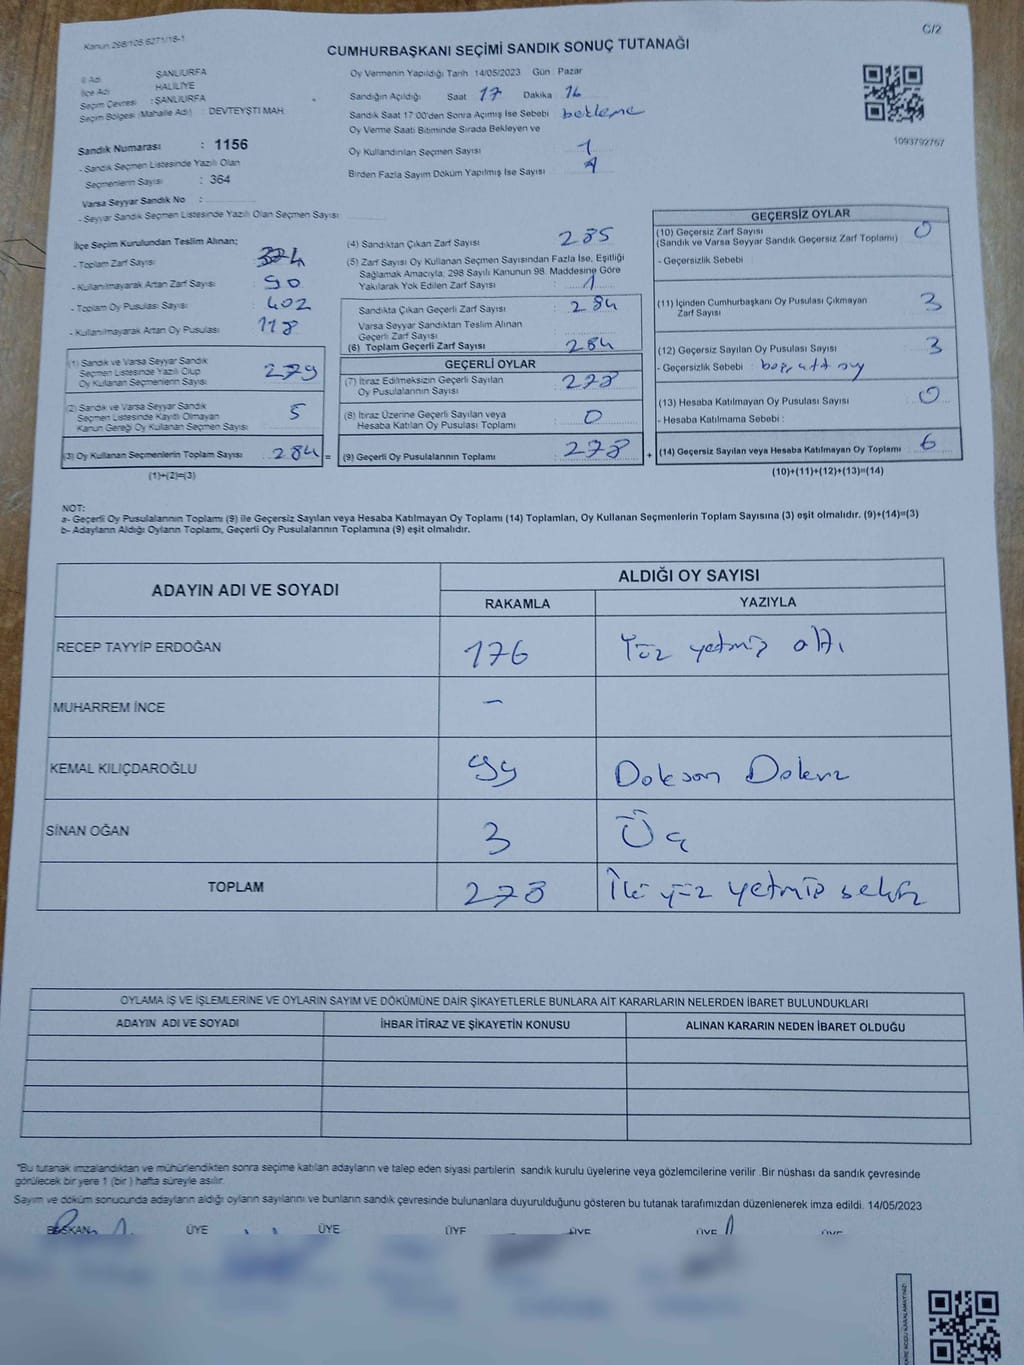 Kanun 298/105 6271/18-1
C/2
CUMHURBAŞKANI SEÇİMİ SANDIK SONUÇ TUTANAĞI
İl Adı ŞANLIURFA
İlçe Adı HALİLİYE
Seçim Çevresi : ŞANLIURFA
Seçim Bölgesi (Mahalle Adı) : DEVTEYŞTİ MAH.
Sandık Numarası : 1156
- Sandık Seçmen Listesinde Yazılı Olan
Seçmenlerin Sayısı : 364
Varsa Seyyar Sandık No :
- Seyyar Sandık Seçmen Listesinde Yazılı Olan Seçmen Sayısı
Oy Vermenin Yapıldığı Tarih 14/05/2023 Gün Pazar
Sandığın Açıldığı Saat 17 Dakika 16
Sandık Saat 17:00'den Sonra Açımış İse Sebebi bekleme
Oy Verme Saati Bitiminde Sırada Bekleyen ve
Oy Kullandırılan Seçmen Sayısı 1
Birden Fazla Sayım Döküm Yapılmış İse Sayısı
1093792767
İlçe Seçim Kurulundan Teslim Alınan;
- Toplam Zarf Sayısı : 374
- Kullanılmayarak Artan Zarf Sayısı : 90
- Toplam Oy Pusulası Sayısı : 402
- Kullanılmayarak Artan Oy Pusulası : 118
(1) Sandık ve Varsa Seyyar Sandık
Seçmen Listesinde Yazılı Olup
Oy Kullanan Seçmenlerin Sayısı : 279
(2) Sandık ve Varsa Seyyar Sandık
Seçmen Listesinde Kayıtlı Olmayan
Kanun Gereği Oy Kullanan Seçmen Sayısı 5
(3) Oy Kullanan Seçmenlerin Toplam Sayısı 284 =
(1)+(2)=(3)
(4) Sandıktan Çıkan Zarf Sayısı 285
(5) Zarf Sayısı Oy Kullanan Seçmen Sayısından Fazla İse, Eşitliği
Sağlamak Amacıyla, 298 Sayılı Kanunun 98. Maddesine Göre
Yakılarak Yok Edilen Zarf Sayısı : 1
Sandıkta Çıkan Geçerli Zarf Sayısı : 284
Varsa Seyyar Sandıktan Teslim Alınan
Geçerli Zarf Sayısı
(6) Toplam Geçerli Zarf Sayısı : 284
GEÇERLİ OYLAR
(7) İtiraz Edilmeksizin Geçerli Sayılan
Oy Pusulalarının Sayısı : 278
(8) İtiraz Üzerine Geçerli Sayılan veya
Hesaba Katılan Oy Pusulası Toplamı : 0
(9) Geçerli Oy Pusulalarının Toplamı : 278 +
GEÇERSİZ OYLAR
(10) Geçersiz Zarf Sayısı
(Sandık ve Varsa Seyyar Sandık Geçersiz Zarf Toplamı) 0
- Geçersizlik Sebebi :
(11) İçinden Cumhurbaşkanı Oy Pusulası Çıkmayan
Zarf Sayısı 3
(12) Geçersiz Sayılan Oy Pusulası Sayısı : 3
- Geçersizlik Sebebi : oy
(13) Hesaba Katılmayan Oy Pusulası Sayısı : 0
- Hesaba Katılmama Sebebi :
(14) Geçersiz Sayılan veya Hesaba Katılmayan Oy Toplamı : 6
(10)+(11)+(12)+(13)=(14)
NOT:
a- Geçerli Oy Pusulalarının Toplamı (9) ile Geçersiz Sayılan veya Hesaba Katılmayan Oy Toplamı (14) Toplamları, Oy Kullanan Seçmenlerin Toplam Sayısına (3) eşit olmalıdır. (9)+(14)=(3)
b- Adayların Aldığı Oyların Toplamı, Geçerli Oy Pusulalarının Toplamına (9) eşit olmalıdır.
ADAYIN ADI VE SOYADI
ALDIĞI OY SAYISI
RAKAMLA YAZIYLA
RECEP TAYYİP ERDOĞAN 176 Yüz yetmiş altı
MUHARREM İNCE -
KEMAL KILIÇDAROĞLU 99 Doksan Dokuz
SİNAN OĞAN 3 Üç
TOPLAM 278 İki yüz yetmiş sekiz
OYLAMA İŞ VE İŞLEMLERİNE VE OYLARIN SAYIM VE DÖKÜMÜNE DAİR ŞİKAYETLERLE BUNLARA AİT KARARLARIN NELERDEN İBARET BULUNDUKLARI
ADAYIN ADI VE SOYADI İHBAR İTİRAZ VE ŞİKAYETİN KONUSU ALINAN KARARIN NEDEN İBARET OLDUĞU
*Bu tutanak imzalandıktan ve mühürlendikten sonra seçime katılan adayların ve talep eden siyasi partilerin sandık kurulu üyelerine veya gözlemcilerine verilir Bir nüshası da sandık çevresinde
görülecek bir yere 1 (bir ) hafta süreyle asılır.
Sayım ve döküm sonucunda adayların aldığı oyların sayılarını ve bunların sandık çevresinde bulunanlara duyurulduğunu gösteren bu tutanak tarafımızdan düzenlenerek imza edildi. 14/05/2023
BAŞKAN ÜYE ÜYE ÜYE ÜYE ÜYE ÜYE